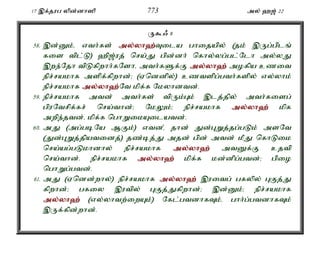 17 இக்தரப லின்னாஸி 773 அல் ஹஜ் 22
ருகூஃ 8
58. இன்னும், எவர்கள் அல்லாஹ்வுடைய பாதையில் (தம் இருப்பிடங்
களை விட்டு) ஹிஜ்ரத் செய்து பின்னர் கொல்லப்பட்டோ அல்லது
இறந்தோ விடுகிறார்களோ, அவர்களுக்கு அல்லாஹ் அழகிய உணவை
நிச்சயமாக அளிக்கிறான்; (ஏனெனில்) உணவளிப்பவர்களில் எல்லாம்
நிச்சயமாக அல்லாஹ்வே மிக்க மேலானவன்.
59. நிச்சயமாக அவன் அவர்கள் விரும்பும் இடத்தில் அவர்களைப்
பிரவேசிக்கச் செய்வான்; மேலும்; நிச்சயமாக அல்லாஹ் மிக
அறிந்தவன். மிக்க பொறுமையுடையவன்.
60. அது (அப்படியே ஆகும்) எவன், தான் துன்புறுத்தப்படும் அளவே
(துன்புறுத்தியவனைத்) தண்டித்து அதன் பின் அவன் மீது கொடுமை
செய்யப்படுமானால் நிச்சயமாக அல்லாஹ் அவனுக்கு உதவி
செய்வான். நிச்சயமாக அல்லாஹ் மிக்க மன்னிப்பவன்; பிழை
பொறுப்பவன்.
61. அது (ஏனென்றால்) நிச்சயமாக அல்லாஹ் இரவைப் பகலில் புகுத்து
கிறான்; பகலை இரவில் புகுத்துகிறான்; இன்னும்; நிச்சயமாக
அல்லாஹ் (எல்லாவற்றையும்) கேட்பவனாகவும். பார்ப்பவனாகவும்
இருக்கின்றான்.